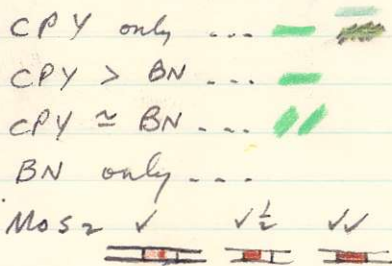 CPY only ...
CPY > BN ...
CPY ≃ BN ...
BN only ...
MoS2 ✓ ✓½ ✓✓